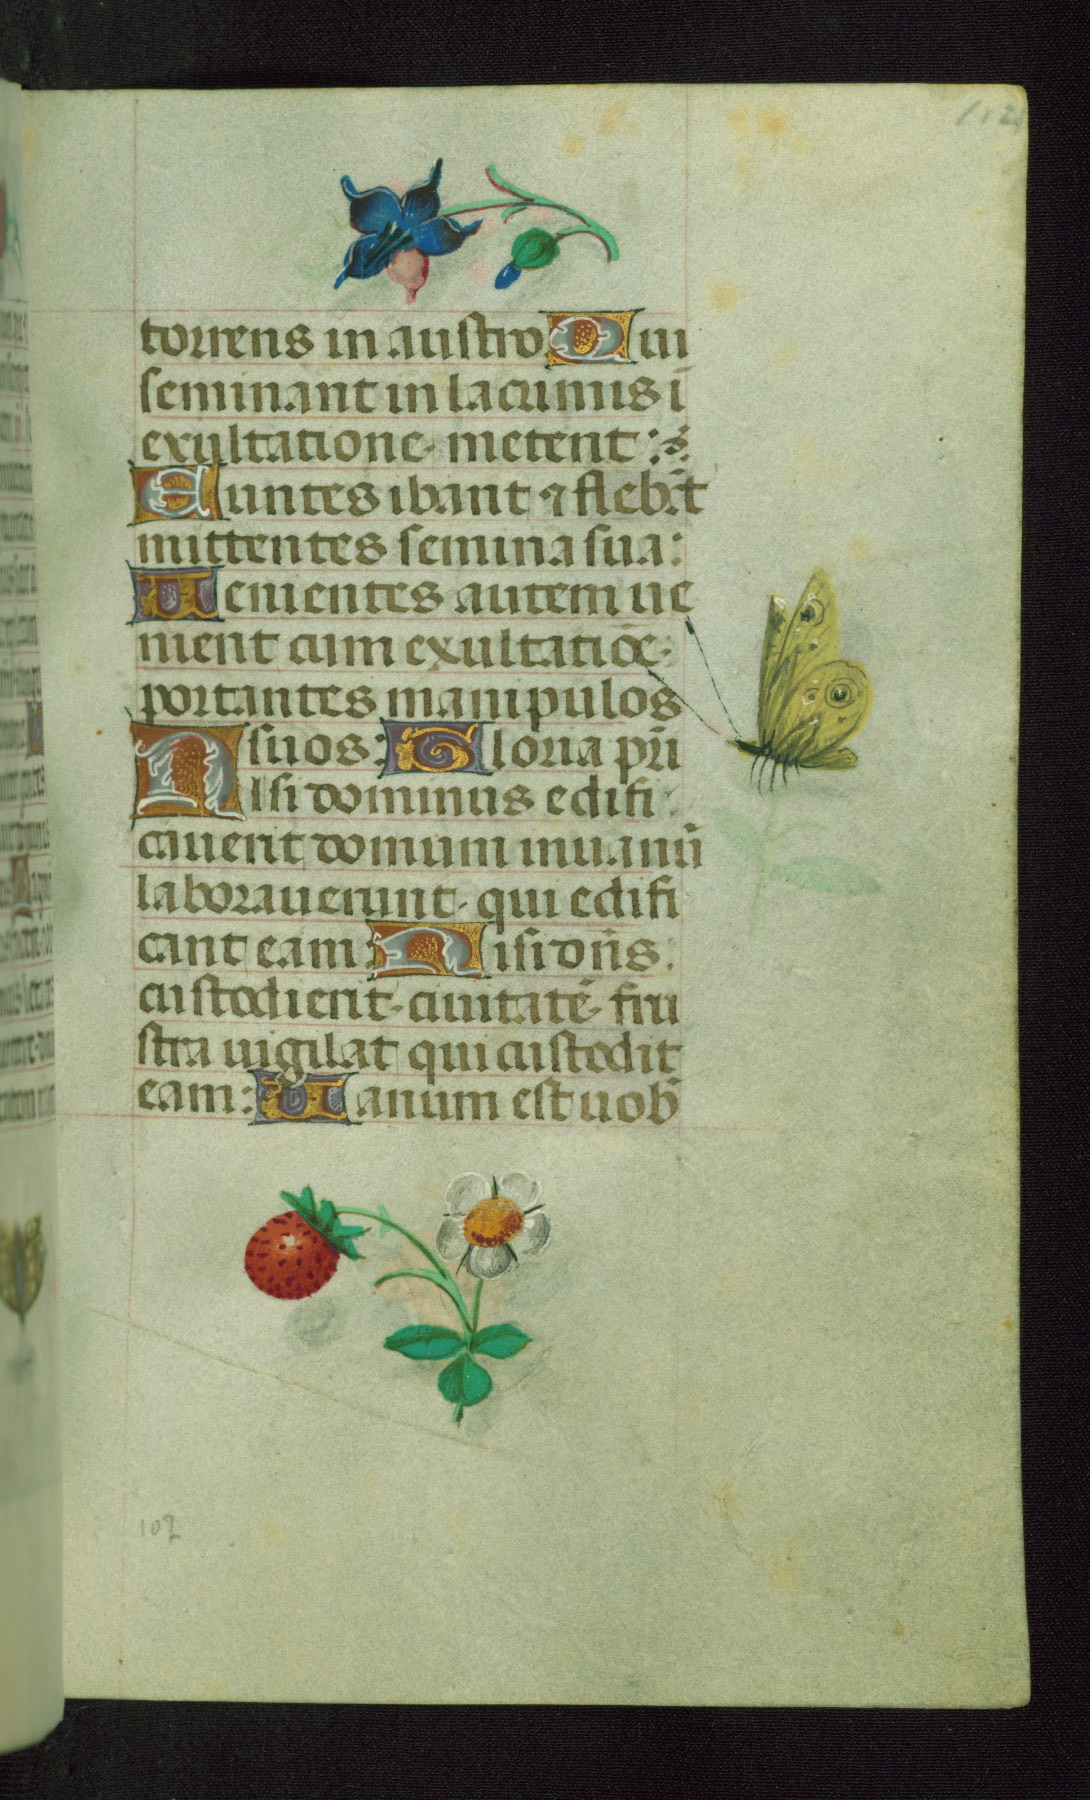 112
torrens in austro. Qui
seminant in lacrimis ī
exultatione. metent:
Euntes ibant ⁊ flebāt
mittentes semina sua:
Uenientes autem ue
nient cum exultatiōe.
portantes manipulos
suos: Gloria pr̄i
Nisi dominus edifi
cauerit domum inuanū
laborauerunt. qui edifi
cant eam: Nisi dn̄s.
custodierit. ciuitatē. fru
stra uigilat qui custodit
eam: Uanum est uob̄
102